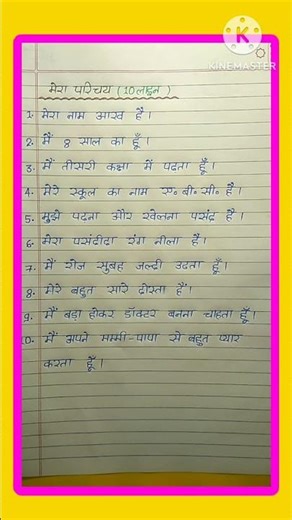 KINEMASTER
मेरा परिचय (10लाइन)
1. मेरा नाम आरव है।
2. मैं 8 साल का हूँ।
3. मैं तीसरी कक्षा में पढता हूँ।
4. मेरे स्कूल का नाम ए० बी० सी० है।
5. मुझे पढना और खेलना पसंद है।
6. मेरा पसंदीदा रंग नीला है।
7. मैं रोज सुबह जल्दी उठता हूँ।
8. मेरे बहुत सारे दोस्त हैं।
9. मैं बड़ा होकर डॉक्टर बनना चाहता हूँ।
10. मैं अपने मम्मी-पापा से बहुत प्यार
करता हूँ।